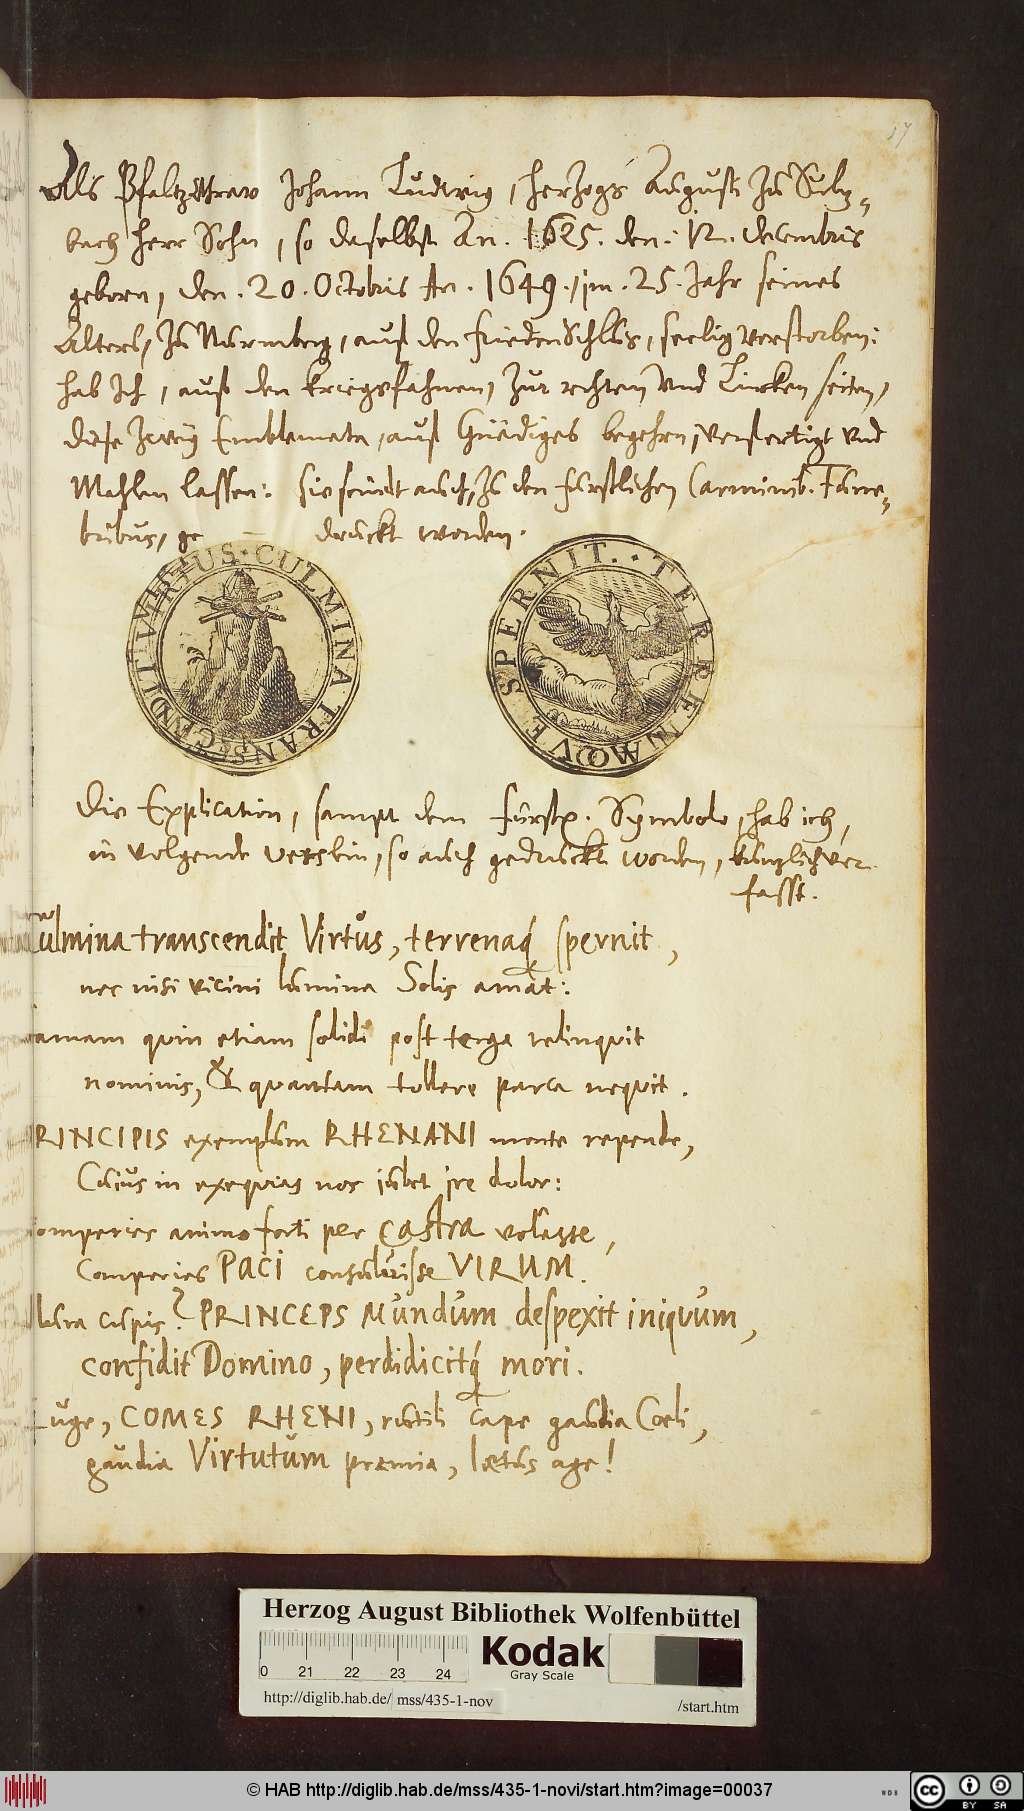 17
Als Pfaltzgrav Johann Ludwig, Herzogs Augusti zu Sultz=
bach Herr Sohn, so daselbst An. 1625. den. 12. decembris
geboren, den. 20. Octobris An. 1649. im. 25. Jahr seines
Alters, zu Nürmberg, auß den friedenSchluß, seelig verstorben:
hab Ich, auß den kriegsfahnen, zur rechten vnd Lincken seiten,
diese zwey Emblemata, auß Gnädiges begehrn, verfertigt vnd
Mahlen lassen: sie seindt auch, zu den fürstlichen Carminib. Fune=
bribus, ge druckt worden.
VIRTUS · CULMINA · TRANSCENDIT ·
TERRENAQVE SPERNIT.
Die Explication, sampt dem fürstl. Symbolo, hab ich,
in volgende verslein, so auch gedruckt worden, kürtzlich ver
fasst.
Culmina transcendit Virtus, terrenaq́ spernit,
nec nisi vicini lumina Solis amat:
Famam quin etiam solidi post terga relinquit
nominis, & quantam tollere parca nequit.
PRINCIPIS exemplum RHENANI mente repende,
Cuius in exequias nos jubet ire dolor:
Comperies animo forti per castra volasse,
Comperies PACI consuluisse VIRUM.
plura cupis? PRINCEPS Mundum despexit iniquum,
confidit Domino, perdidicitq́ mori.
Euge, COMES RHENI, rutili cape gaudia Coeli,
gaudia Virtutum præmia, lætus age!
Herzog August Bibliothek Wolfenbüttel
0 21 22 23 24
Kodak
Gray Scale
http://diglib.hab.de/ mss/435-1-nov /start.htm
© HAB http://diglib.hab.de/mss/435-1-novi/start.htm?image=00037
WDB
cc BY SA